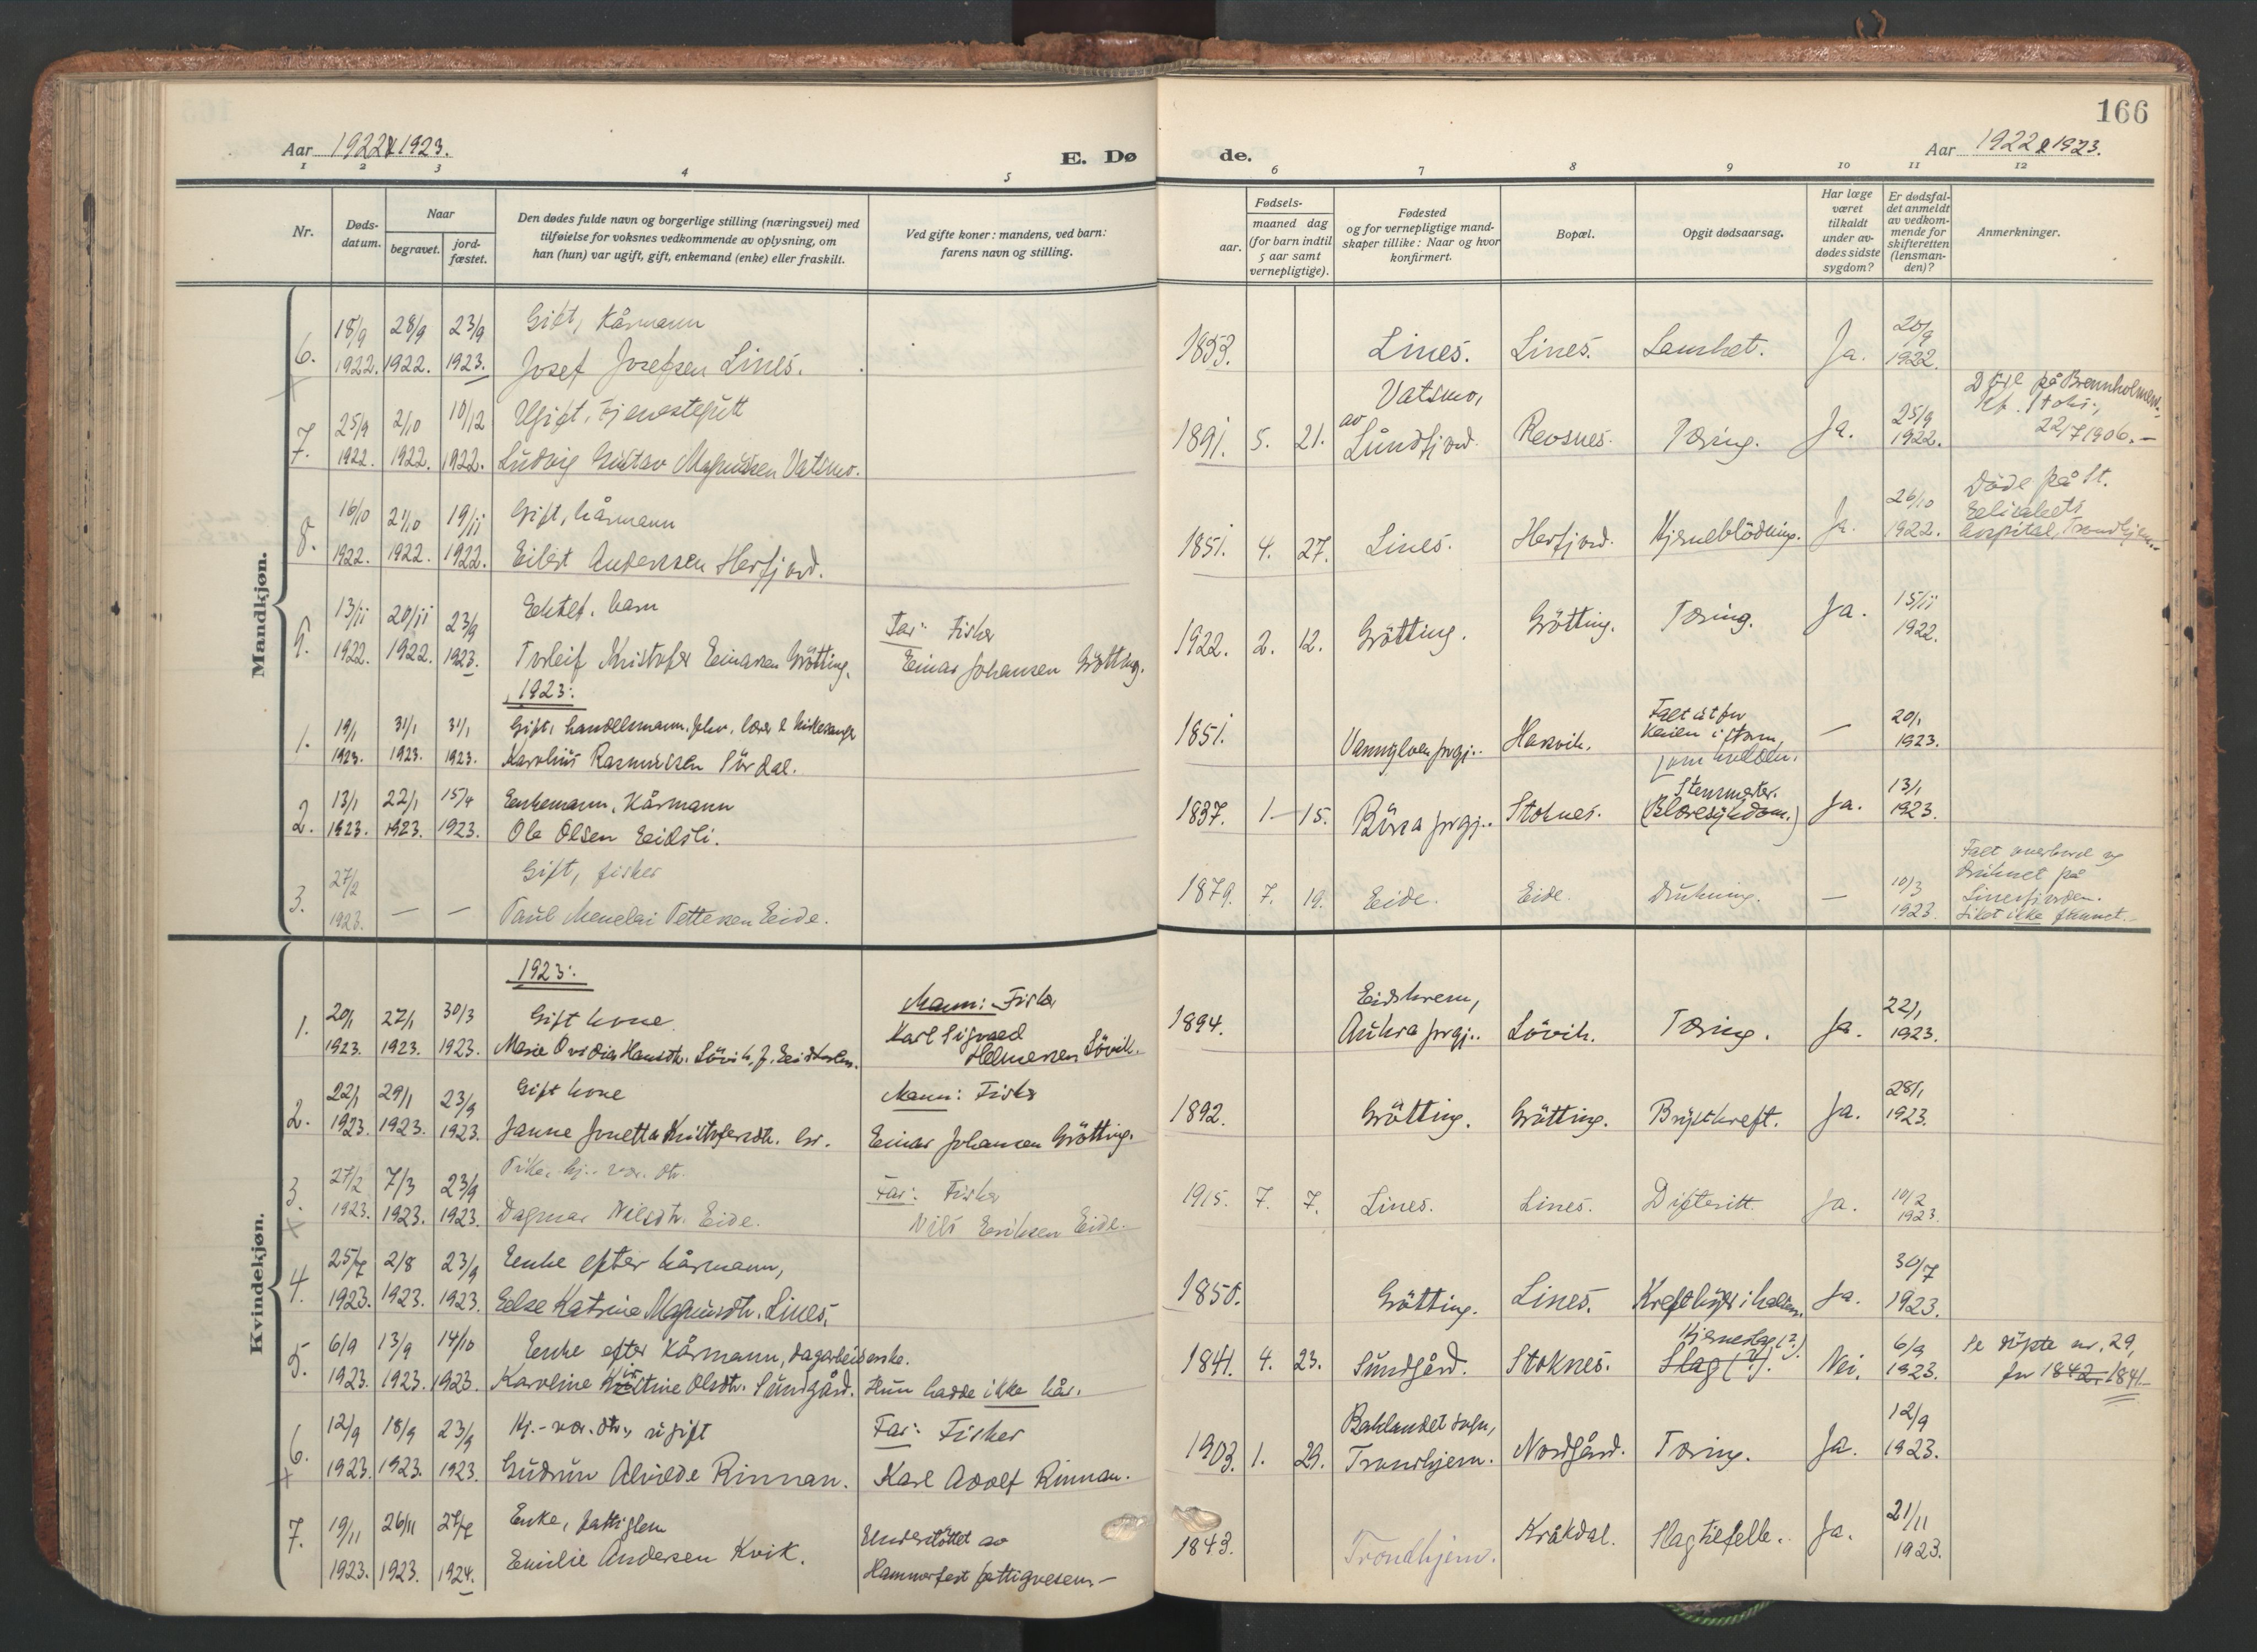 166
Aar 1922 & 1923.
E. Dø
de.
Aar 1922 & 1923.
1 2 3 4 5 6 7 8 9 10 11 12
Nr.
Døds-
datum.
Naar
begravet.
jord-
fæstet.
Den dødes fulde navn og borgerlige stilling (næringsvei) med
tilføielse for voksnes vedkommende av oplysning, om
han (hun) var ugift, gift, enkemand (enke) eller fraskilt.
Ved gifte koner: mandens, ved barn:
farens navn og stilling.
Fødsels-
aar.
maaned dag
(for barn indtil
5 aar samt
vernepligtige).
Fødested
og for vernepligtige mand-
skaper tillike: Naar og hvor
konfirmert.
Bopæl.
Opgit dødsaarsag.
Har læge
været
tilkaldt
under av-
dødes sidste
sygdom?
Er dødsfal-
det anmeldt
av vedkom-
mende for
skifteretten
(lensman-
den)?
Anmerkninger.
Mandkjøn.
18/9 28/9 23/9 Gift, Kårmann 20/9
6. 1922. 1922. 1923. Josef Josefsen Lines. 1853. Lines. Lines. Ja. 1922.
25/9 2/10 10/12 Ugift, Tjenestegutt Vatsmo, 25/9 Døde på Brennholmen.
7. 1922. 1922. 1922. Ludvig Gustav Magnussen Vatsmo. 1891. 5. 21. av Lundfjord. Revsnes. Tæring. Ja. 1922. 22/7 1906.—
16/10 21/10 19/11 Gift, kårmann 26/10 Døde på St.
8. 1922. 1922. 1922. Eilert Anderssen Herfjord. 1851. 4. 27. Lines. Herfjord. Hjerneblödning. Ja. 1922. Elisabets
hospital, Trondhjem.-
13/11 20/11 23/9 Ektef. barn Far: Fisker 15/11
9. 1922. 1922. 1923. Torleif Kristofer Einarsen Grötting. Einar Johansen Grötting. 1922. 2. 12. Grötting. Grötting. Tæring. Ja. 1922.
1923:
19/1 31/1 31/1 Gift, handelsmann, lærer & kirkesanger Falt ut for 20/1
1. 1923. 1923. 1923. Karolius Rasmussen Sördal. 1851. Vannylven prgj.. Harvik. keien i storm, — 1923.
13/1 22/1 15/4 Enkemann, Kårmann Stensmerter. 13/1
2. 1923. 1923. 1923. Ole Olsen Eidsli. 1837. 1 - 15. prgj.. Stoknes. (Blæresykdom.) Ja. 1923.
27/2 Gift, fisker Falt overbord og
3. 1923. — — Paul Menelai Pettersen Eide. 1879. 7. 19. Eide. Eide. Drukning. — 10/3 1923. druknet på
Linesfjorden.
Liket ikke funnet.-
Kvindekjøn.
1923:
20/1 27/1 30/3 Gift kone Mann: Fisker Eidskrem, 22/1
1. 1923. 1923. 1923. Marie Ovidia Hansdtr. Lövik, Karl Sigvald Helmersen Lövik. 1894. Aukra prgj.. Lövik. Tæring. Ja. 1923.
22/1 29/1 23/9 Gift kone Mann: Fisker 28/1
2. 1923. 1923. 1923. Janne Jonetta Kristofersdtr. Gr. Einar Johansen Grötting. 1892. Grötting. Grötting. Brystkreft. Ja. 1923.
27/2 7/3 23/9 Pike, hj.. vær. dtr. Far: Fisker 10/2
3. 1923. 1923. 1923. Dagmar Nilsdtr. Eide. Nils Eriksen Eide.- 1915. 7. 7. Lines. Lines. Difteritt. Ja. 1923.
25/7 2/8 23/9 Enke efter kårmann, 30/7
4. 1923. 1923. 1923. Else Katrine Magnusdtr. Lines. 1850. Grötting. Lines. Ja. 1923.
6/9 13/9 14/10 Enke efter Kårmann, dagarbeiderske. Hjerneslag (?) 6/9 Se döpte nr. 29,
5. 1923. 1923. 1923. Karoline Kristine Olsdtr. Sundgård. Hun hadde ikke kår. 1841. 4. 23. Sundgård. Stoknes. Slag (?). Nei. 1923. for 1842. 1841.-
12/9 18/9 23/9 Hj.- vær. dtr., ugift Far: Fisker Baklandet sogn, 12/9
6. 1923. 1923. 1923. Gudrun Alvilde Rinnan. Karl Adolf Rinnan. 1903. 1. 29. Trondhjem. Nordgård. Tæring. Ja. 1923.
19/11 26/11 27/7 Enke, fattiglem Understöttet av 21/11
7. 1923. 1923. 1924. Emilie Andersen Kvik. Hammerfest fattigvesen.— 1843. Trondhjem. Kråkdal. Slagtilfelle. Ja. 1923.